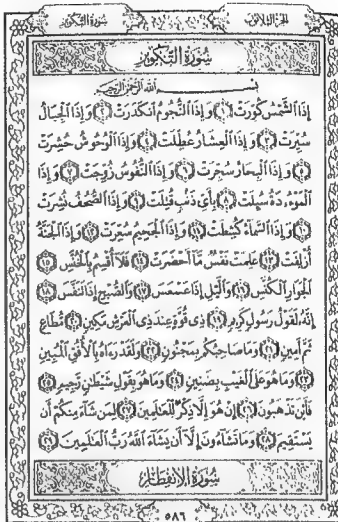 الجزء الثلاثون سورة التكوير
سورة التكوير
بسم الله الرحمن الرحيم
إِذَا الشَّمْسُ كُوِّرَتْ ﴿١﴾ وَإِذَا النُّجُومُ انكَدَرَتْ ﴿٢﴾ وَإِذَا الْجِبَالُ
سُيِّرَتْ ﴿٣﴾ وَإِذَا الْعِشَارُ عُطِّلَتْ ﴿٤﴾ وَإِذَا الْوُحُوشُ حُشِرَتْ
﴿٥﴾ وَإِذَا الْبِحَارُ سُجِّرَتْ ﴿٦﴾ وَإِذَا النُّفُوسُ زُوِّجَتْ ﴿٧﴾ وَإِذَا
الْمَوْءُدَةُ سُئِلَتْ ﴿٨﴾ بِأَيِّ ذَنْبٍ قُتِلَتْ ﴿٩﴾ وَإِذَا الصُّحُفُ نُشِرَتْ
﴿١٠﴾ وَإِذَا السَّمَاءُ كُشِطَتْ ﴿١١﴾ وَإِذَا الْجَحِيمُ سُعِّرَتْ ﴿١٢﴾ وَإِذَا الْجَنَّةُ
أُزْلِفَتْ ﴿١٣﴾ عَلِمَتْ نَفْسٌ مَّا أَحْضَرَتْ ﴿١٤﴾ فَلَا أُقْسِمُ بِالْخُنَّسِ ﴿١٥﴾
الْجَوَارِ الْكُنَّسِ ﴿١٦﴾ وَالَّيْلِ إِذَا عَسْعَسَ ﴿١٧﴾ وَالصُّبْحِ إِذَا تَنَفَّسَ ﴿١٨﴾
إِنَّهُ لَقَوْلُ رَسُولٍ كَرِيمٍ ﴿١٩﴾ ذِي قُوَّةٍ عِندَ ذِي الْعَرْشِ مَكِينٍ ﴿٢٠﴾ مُّطَاعٍ
ثَمَّ أَمِينٍ ﴿٢١﴾ وَمَا صَاحِبُكُم بِمَجْنُونٍ ﴿٢٢﴾ وَلَقَدْ رَءَاهُ بِالْأُفُقِ الْمُبِينِ
﴿٢٣﴾ وَمَا هُوَ عَلَى الْغَيْبِ بِضَنِينٍ ﴿٢٤﴾ وَمَا هُوَ بِقَوْلِ شَيْطَٰنٍ رَّجِيمٍ ﴿٢٥﴾
فَأَيْنَ تَذْهَبُونَ ﴿٢٦﴾ إِنْ هُوَ إِلَّا ذِكْرٌ لِّلْعَالَمِينَ ﴿٢٧﴾ لِمَن شَاءَ مِنكُمْ أَن
يَسْتَقِيمَ ﴿٢٨﴾ وَمَا تَشَاءُونَ إِلَّا أَن يَشَاءَ اللَّهُ رَبُّ الْعَٰلَمِينَ ﴿٢٩﴾
سورة الانفطار
٥٨٦